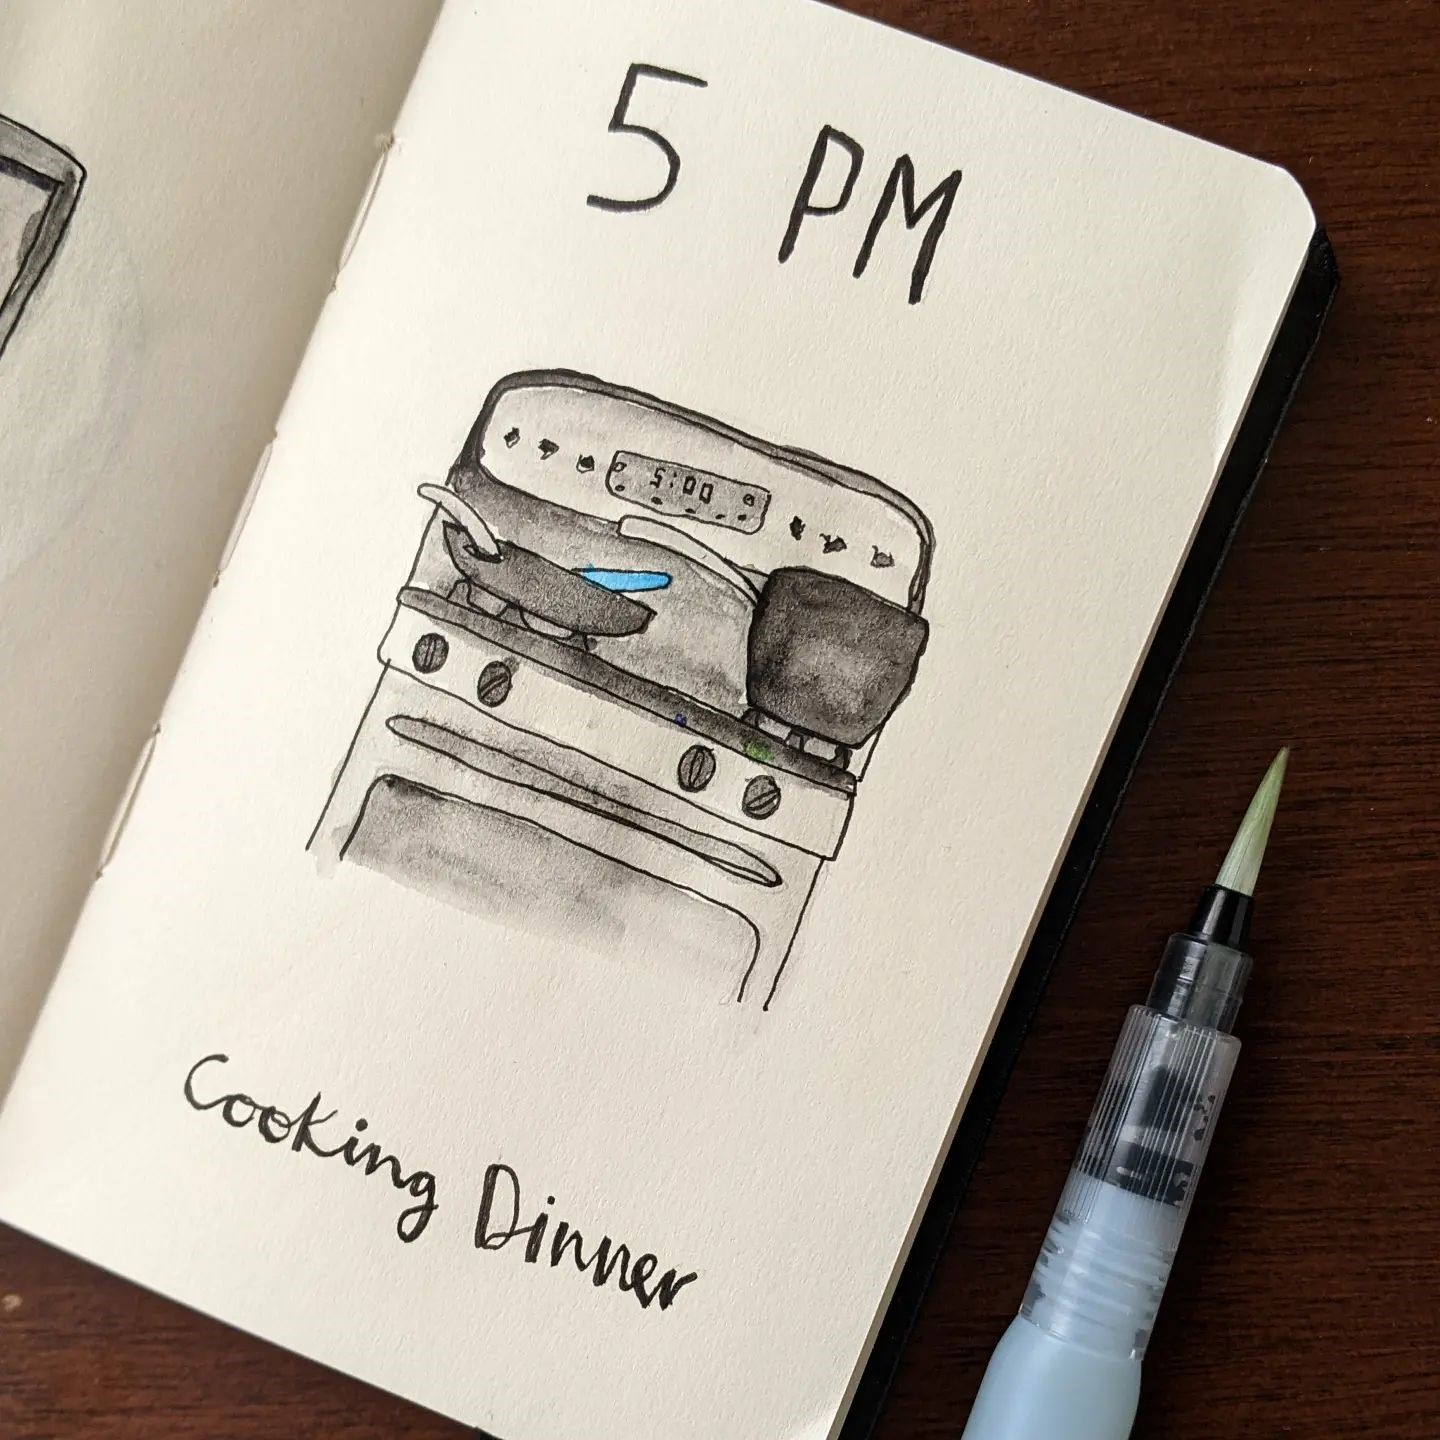 5 PM
5:00
Cooking Dinner